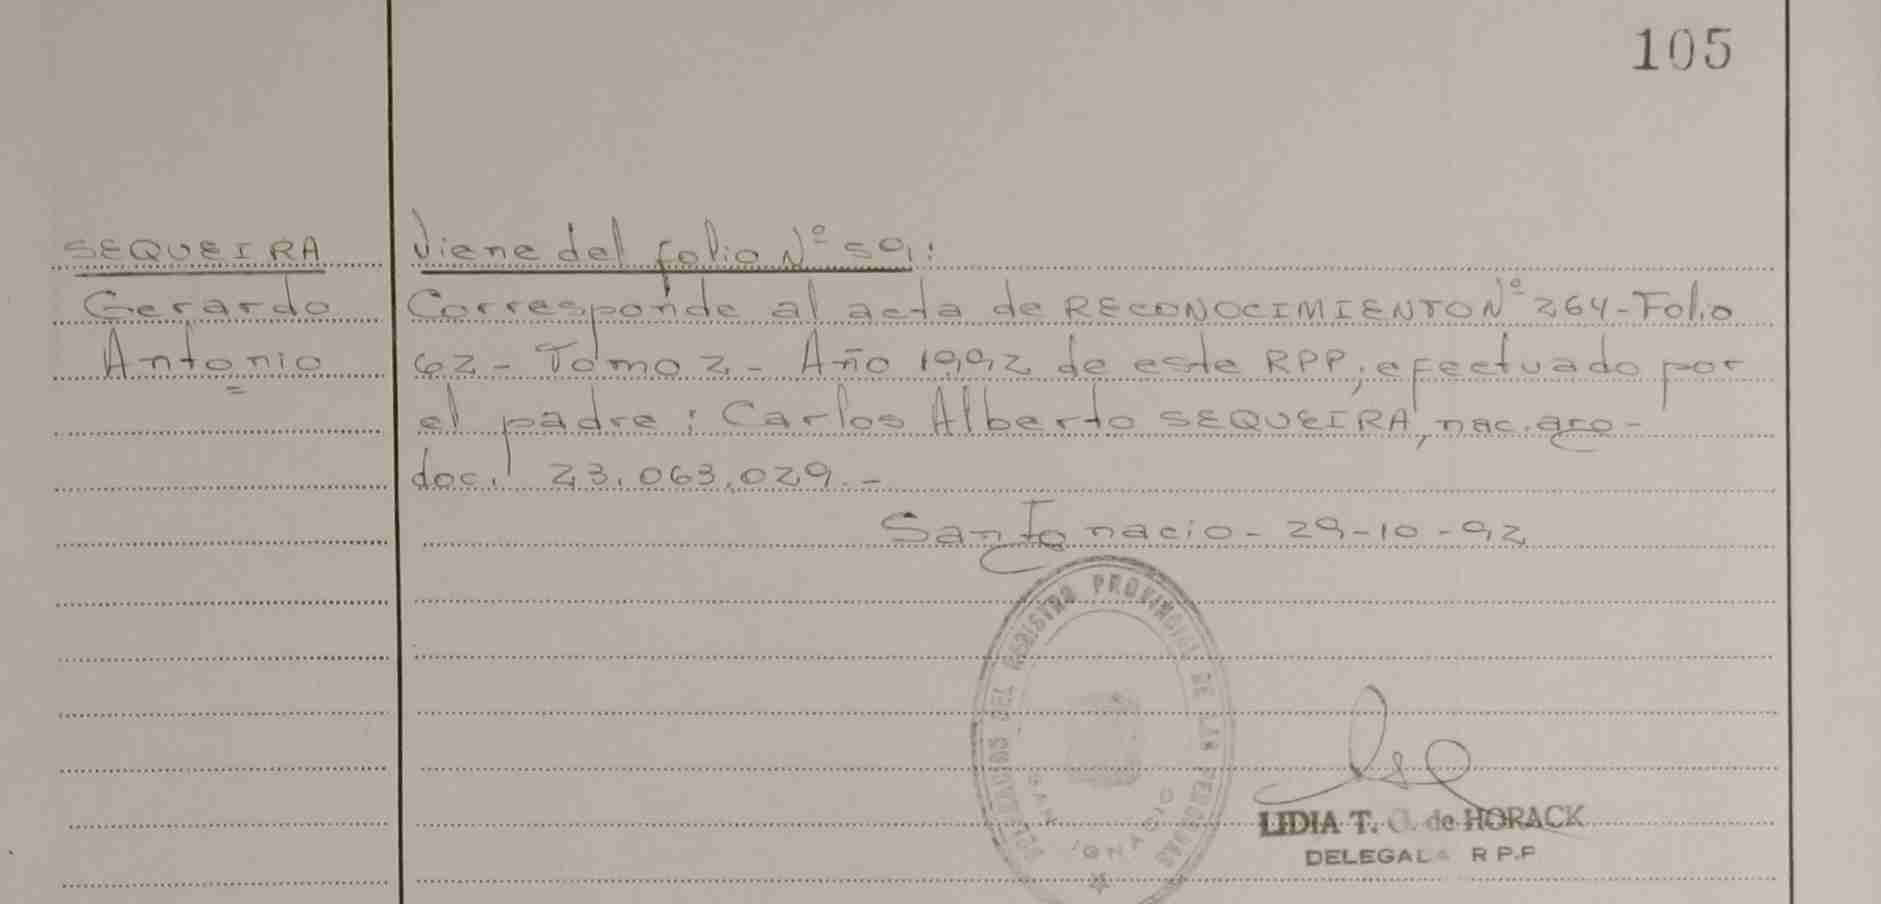 105
SEQUEIRA
Gerardo
Antonio
Viene del folio Nº 50:
Corresponde al acta de RECONOCIMIENTO Nº 264-Folio
62- Tomo 2- Año 1992 de este RPP, efectuado por
el padre: Carlos Alberto SEQUEIRA, nac. arg-
doc. 23.063.029.-
San Ignacio- 29-10-92
DEL REGISTRO PROVINCIAL DE LAS PERSONAS
SAN IGNACIO
LIDIA T. G. de HORACK
DELEGADA R.P.P